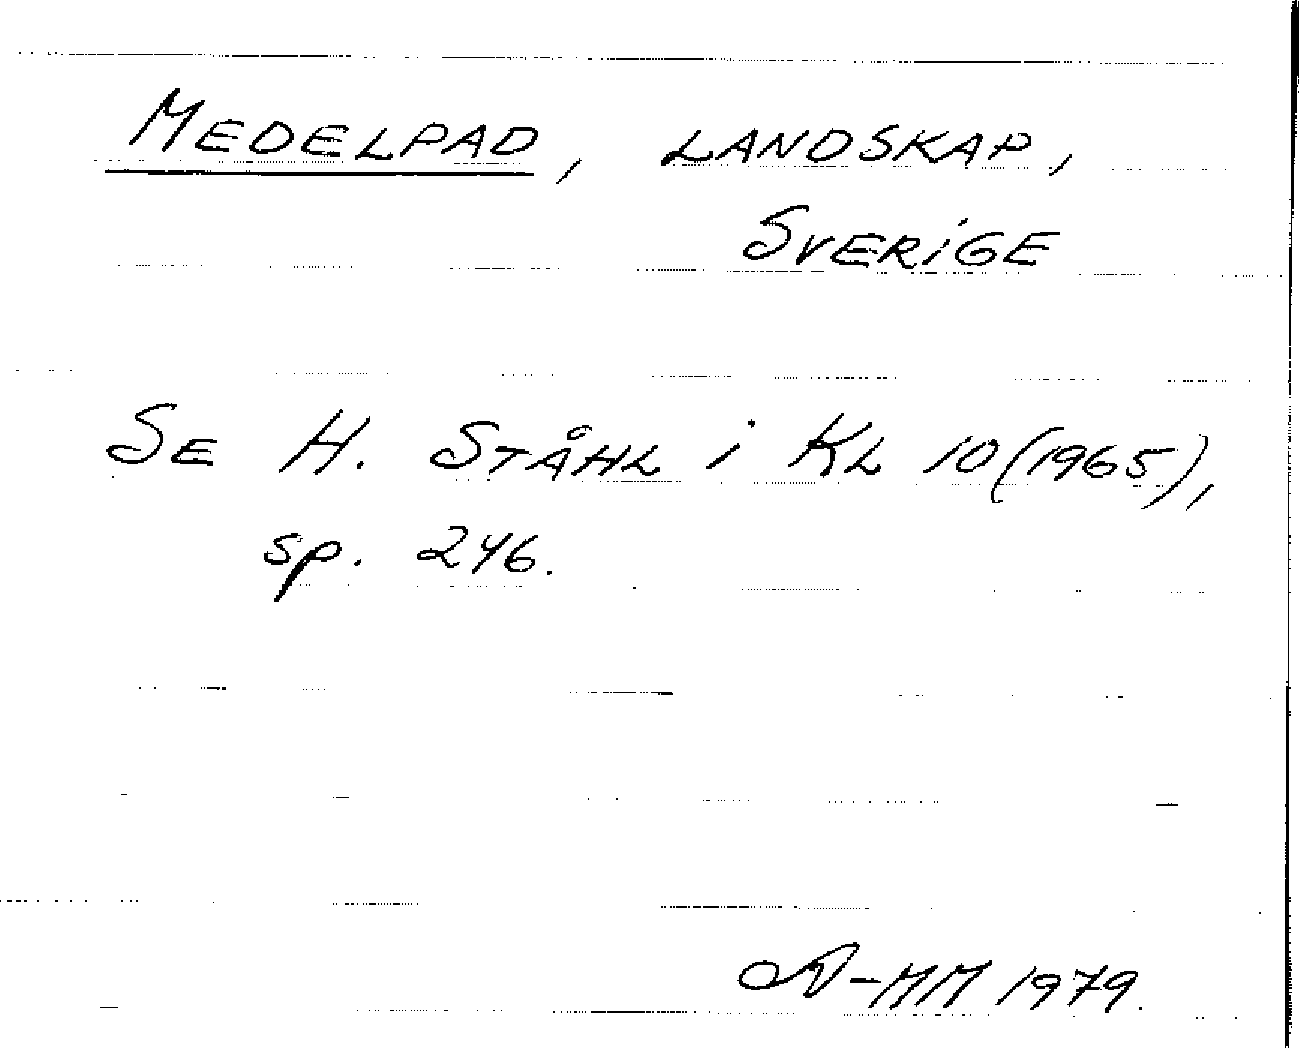 MEDELPAD, LANDSKAP,
SVERIGE
SE H. STÅHL i KL 10 (1965),
sp. 246.
A-MM 1979.